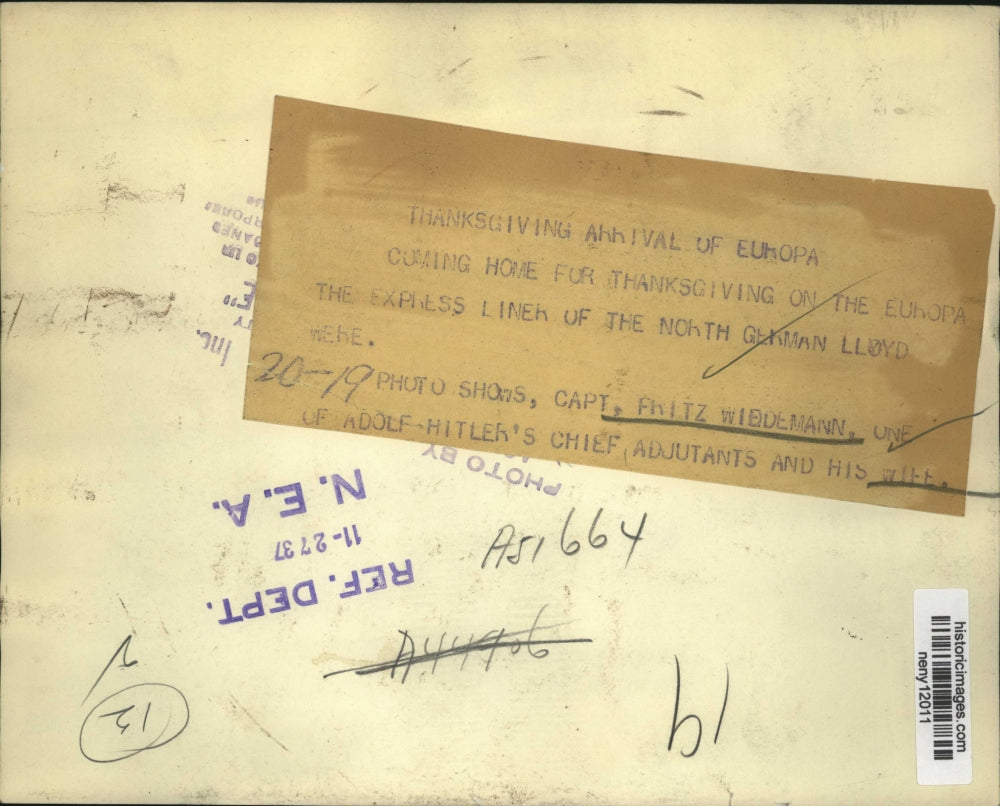 THANKSGIVING ARRIVAL OF EUROPA
COMING HOME FOR THANKSGIVING ON THE EUROPA
THE EXPRESS LINER OF THE NORTH GERMAN LLOYD
WERE.
20-19 PHOTO SHOWS, CAPT. FRITZ WIEDEMANN, ONE
OF ADOLF HITLER'S CHIEF ADJUTANTS AND HIS WIFE.
PHOTO BY
Inc.
N.E.A.
11-27 37
REF. DEPT.
A51664
A44906
12
historicimages.com
neny12011